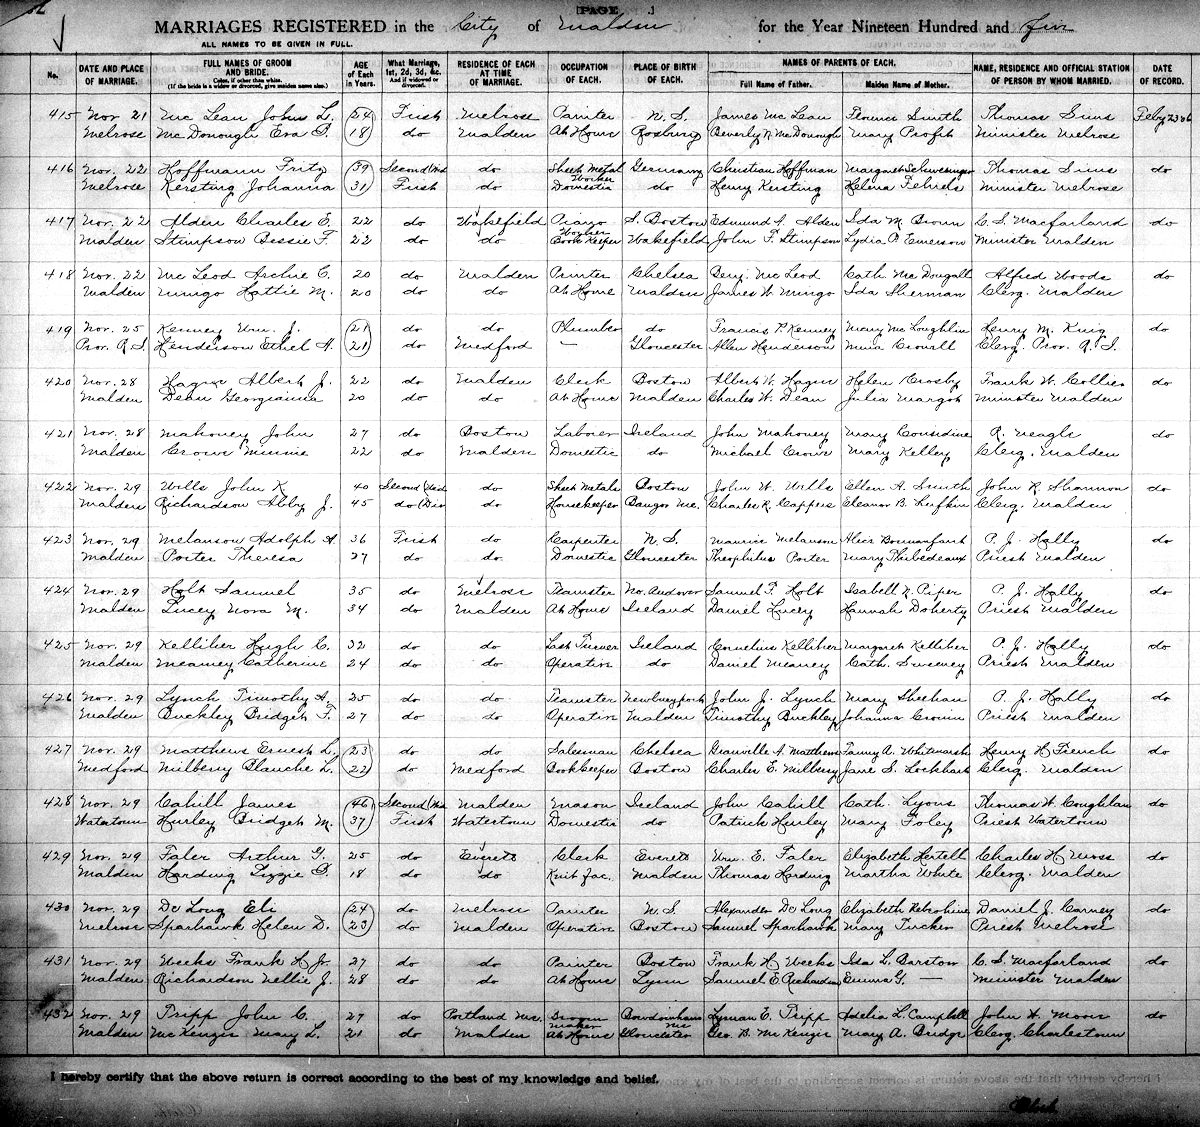 [PAGE ]
MARRIAGES REGISTERED in the City of Malden for the Year Nineteen Hundred and five
ALL NAMES TO BE GIVEN IN FULL.
No. DATE AND PLACE OF MARRIAGE. FULL NAMES OF GROOM AND BRIDE. Color, if other than white. (If the bride is a widow or divorced, give maiden name also.) AGE of Each in Years. What Marriage, 1st, 2d, 3d, &c. And if widowed or divorced. RESIDENCE OF EACH AT TIME OF MARRIAGE. OCCUPATION OF EACH. PLACE OF BIRTH OF EACH. NAMES OF PARENTS OF EACH. Full Name of Father. Maiden Name of Mother. NAME, RESIDENCE AND OFFICIAL STATION OF PERSON BY WHOM MARRIED. DATE OF RECORD.
415 Nov. 21 Mc Lean John L. 24 First Melrose Painter N. S. James Mc Lean Florence Smith Thomas Sims Feby 23 06
Melrose Mc Donough Eva P. 18 do Malden At Home Roxbury Beverly N. McDonough Mary Profit Minister Melrose
416 Nov. 22 Hoffmann Fritz 39 Second (Wid do Sheet Metal Worker Germany Christian Hoffman Margaret Thomas Sims do
Melrose Kersting Johanna 31 First do Domestic do Henry Kersting Helena Minister Melrose
417 Nov. 22 Alden Charles E. 22 do Wakefield Piano Worker S. Boston Edmund A. Alden Ida M. Brown C. S. Macfarland do
Malden Stimpson Bessie F. 22 do do Book Keeper Wakefield John F. Stimpson Lydia P. Emerson Minister Malden
418 Nov. 22 Mc Leod Archie C. 20 do Malden Printer Chelsea Benj. Mc Leod Cath. Mc Dougall Alfred Woods do
Malden Mingo Hattie M. 20 do do At Home Malden James W. Mingo Ida Sherman Clerg. Malden
419 Nov. 25 Kenney Wm. J. 21 do do Plumber do Francis P. Kenney Mary Mc Loughlin Henry M. King do
Prov. R. I. Henderson Ethel A. 21 do Medford — Gloucester Allen Henderson Mina Crowell Clerg. Prov. R. I.
420 Nov. 28 Hague Albert J. 22 do Malden Clerk Boston Albert W. Hague Helen Crosby Frank W. Collier do
Malden Dean Georgianna 20 do do At Home Malden Charles W. Dean Julia Margot Minister Malden
421 Nov. 28 Mahoney John 27 do Boston Laborer Ireland John Mahoney Mary Considine R. Neagle do
Malden Crowe Minnie 22 do Malden Domestic do Michael Crowe Mary Kelley Clerg. Malden
422 Nov. 29 Wills John K. 40 Second do Sheet Metals Boston John W. Wills Ellen A. Smith John R. Shannon do
Malden Richardson Abby J. 45 do (Div do Housekeeper Bangor Me. Charles R. Cappers Eleanor B. Lufkin Clerg. Malden
423 Nov. 29 Melanson Adolph A. 36 First do Carpenter N. S. Maurice Melanson P. J. Hally do
Malden Porter Theresa 27 do do Domestic Gloucester Theophilus Porter Mary Thibedeaux Priest Malden
424 Nov. 29 Holt Samuel 35 do Melrose Teamster No. Andover Samuel F. Holt Isabell N. Piper P. J. Hally do
Malden Lucey Nora M. 34 do Malden At Home Ireland Daniel Lucey Hannah Doherty Priest Malden
425 Nov. 29 Kelliher Hugh C. 32 do do Last Turner Ireland Cornelius Kelliher Margaret Kelliher P. J. Hally do
Malden Meaney Catherine 24 do do Operative do Daniel Meaney Cath. Sweeney Priest Malden
426 Nov. 29 Lynch Timothy A. 25 do do Teamster Newburyport John J. Lynch Mary Sheehan P. J. Hally do
Malden Buckley Bridget F. 27 do do Operative Malden Timothy Buckley Johanna Cronin Priest Malden
427 Nov. 29 Matthews Ernest L. 23 do do Salesman Chelsea Granville A. Matthews Fanny A. Whitmarsh Henry H. French do
Medford Milberry Blanche L. 22 do Medford Bookkeeper Boston Charles E. Milberry Jane S. Lockhart Clerg. Malden
428 Nov. 29 Cahill James 46 Second (Wid Malden Mason Ireland John Cahill Cath. Lyons Thomas W. Coughlan do
Watertown Hurley Bridget M. 37 First Watertown Domestic do Patrick Hurley Mary Foley Priest Watertown
429 Nov. 29 Faler Arthur G. 25 do Everett Clerk Everett Wm. E. Faler Elizabeth Hertell Charles H. Moss do
Malden Harding Lizzie P. 18 do do Knit Fac. Malden Thomas Harding Martha White Clerg. Malden
430 Nov. 29 De Long Eli 24 do Melrose Painter N. S. Alexander De Long Elizabeth Daniel J. Carney do
Melrose Sparhawk Helen D. 23 do Malden Operative Boston Samuel Sparhawk Mary Tucker Priest Melrose
431 Nov. 29 Weeks Frank H. Jr. 27 do do Painter Boston Frank H. Weeks Ida L. Barstow C. S. Macfarland do
Malden Richardson Nellie J. 28 do do At Home Lynn Samuel E. Richardson Emma G. — Minister Malden
432 Nov. 29 Tripp John C. 27 do Portland Me. Broom Maker Bowdoinham Me Lyman E. Tripp Adelia L. Campbell John H. Moon do
Malden McKenzie Mary L. 21 do Malden At Home Gloucester Geo. B. McKenzie Mary A. Bridge Clerg. Charlestown
I hereby certify that the above return is correct according to the best of my knowledge and belief.
Clerk